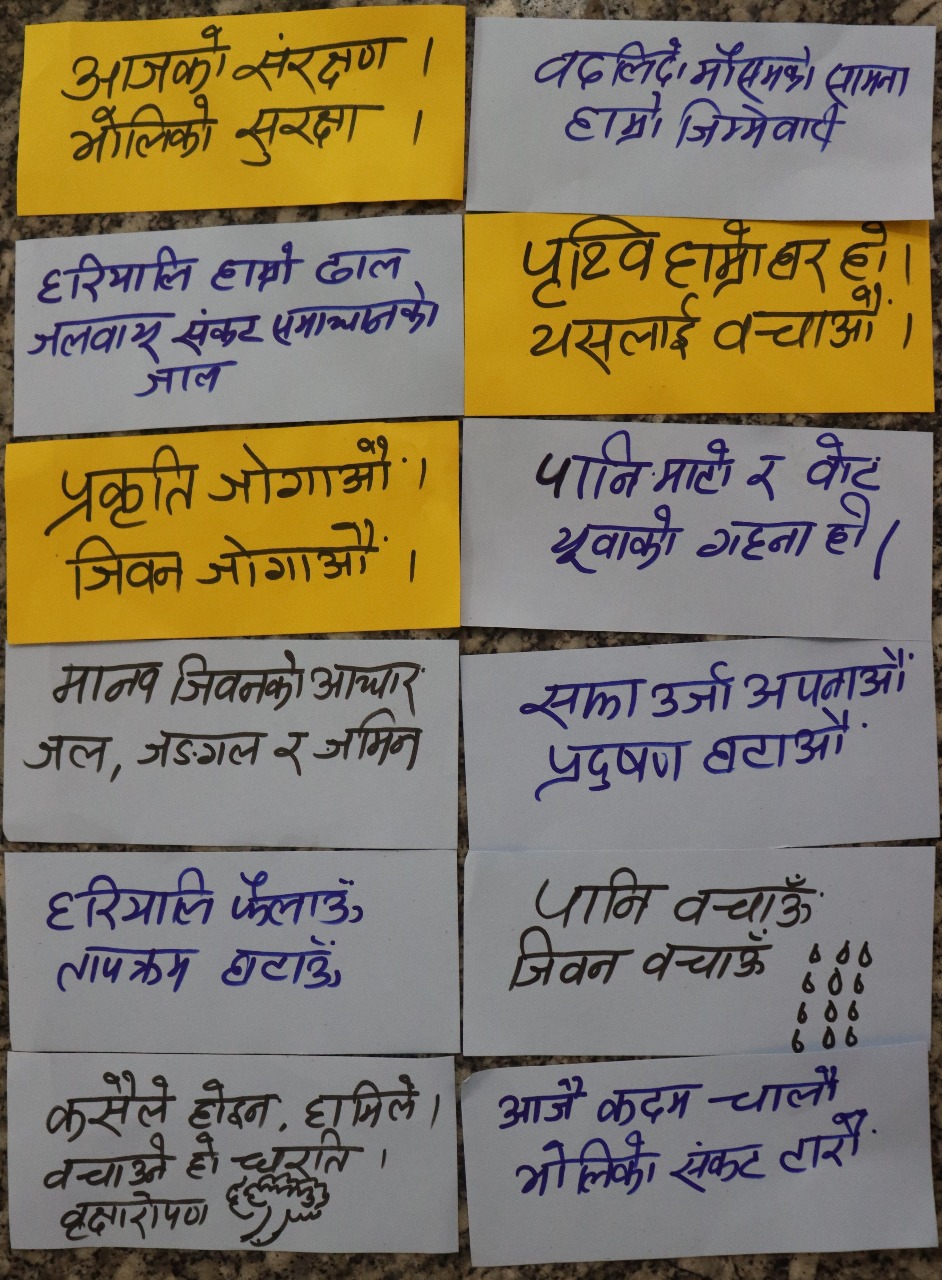 आजको संरक्षण ।
भोलिको सुरक्षा ।
वदलिदो मौसमको सामना
हाम्रो जिम्मेवारी
हरियालि हाम्रो ढाल
जलवायू संकट समाधानको
जाल
पृथ्वि हाम्रो घर हो ।
यसलाई वचाऔं ।
प्रकृति जोगाऔं ।
जिवन जोगाऔं ।
पानि माटो र वोट
यूवाको गहना हो ।
मानव जिवनको आधार
जल, जङगल र जमिन
सफा उर्जा अपनाऔं
प्रदुषण घटाऔं
हरियालि फैलाऊँ
तापक्रम घटाऊँ
पानि वचाऊँ
जिवन वचाऊँ
कसैले होइन, हामिले ।
वचाउने हो धरति ।
वृक्षारोपण
आजै कदम चालौ
भोलिको संकट टारौं